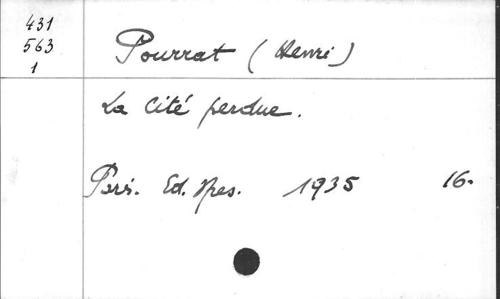 431
563
1
Pourrat (Henri)
La Cité perdue.
Par. Ed. Spes. 1935 16.